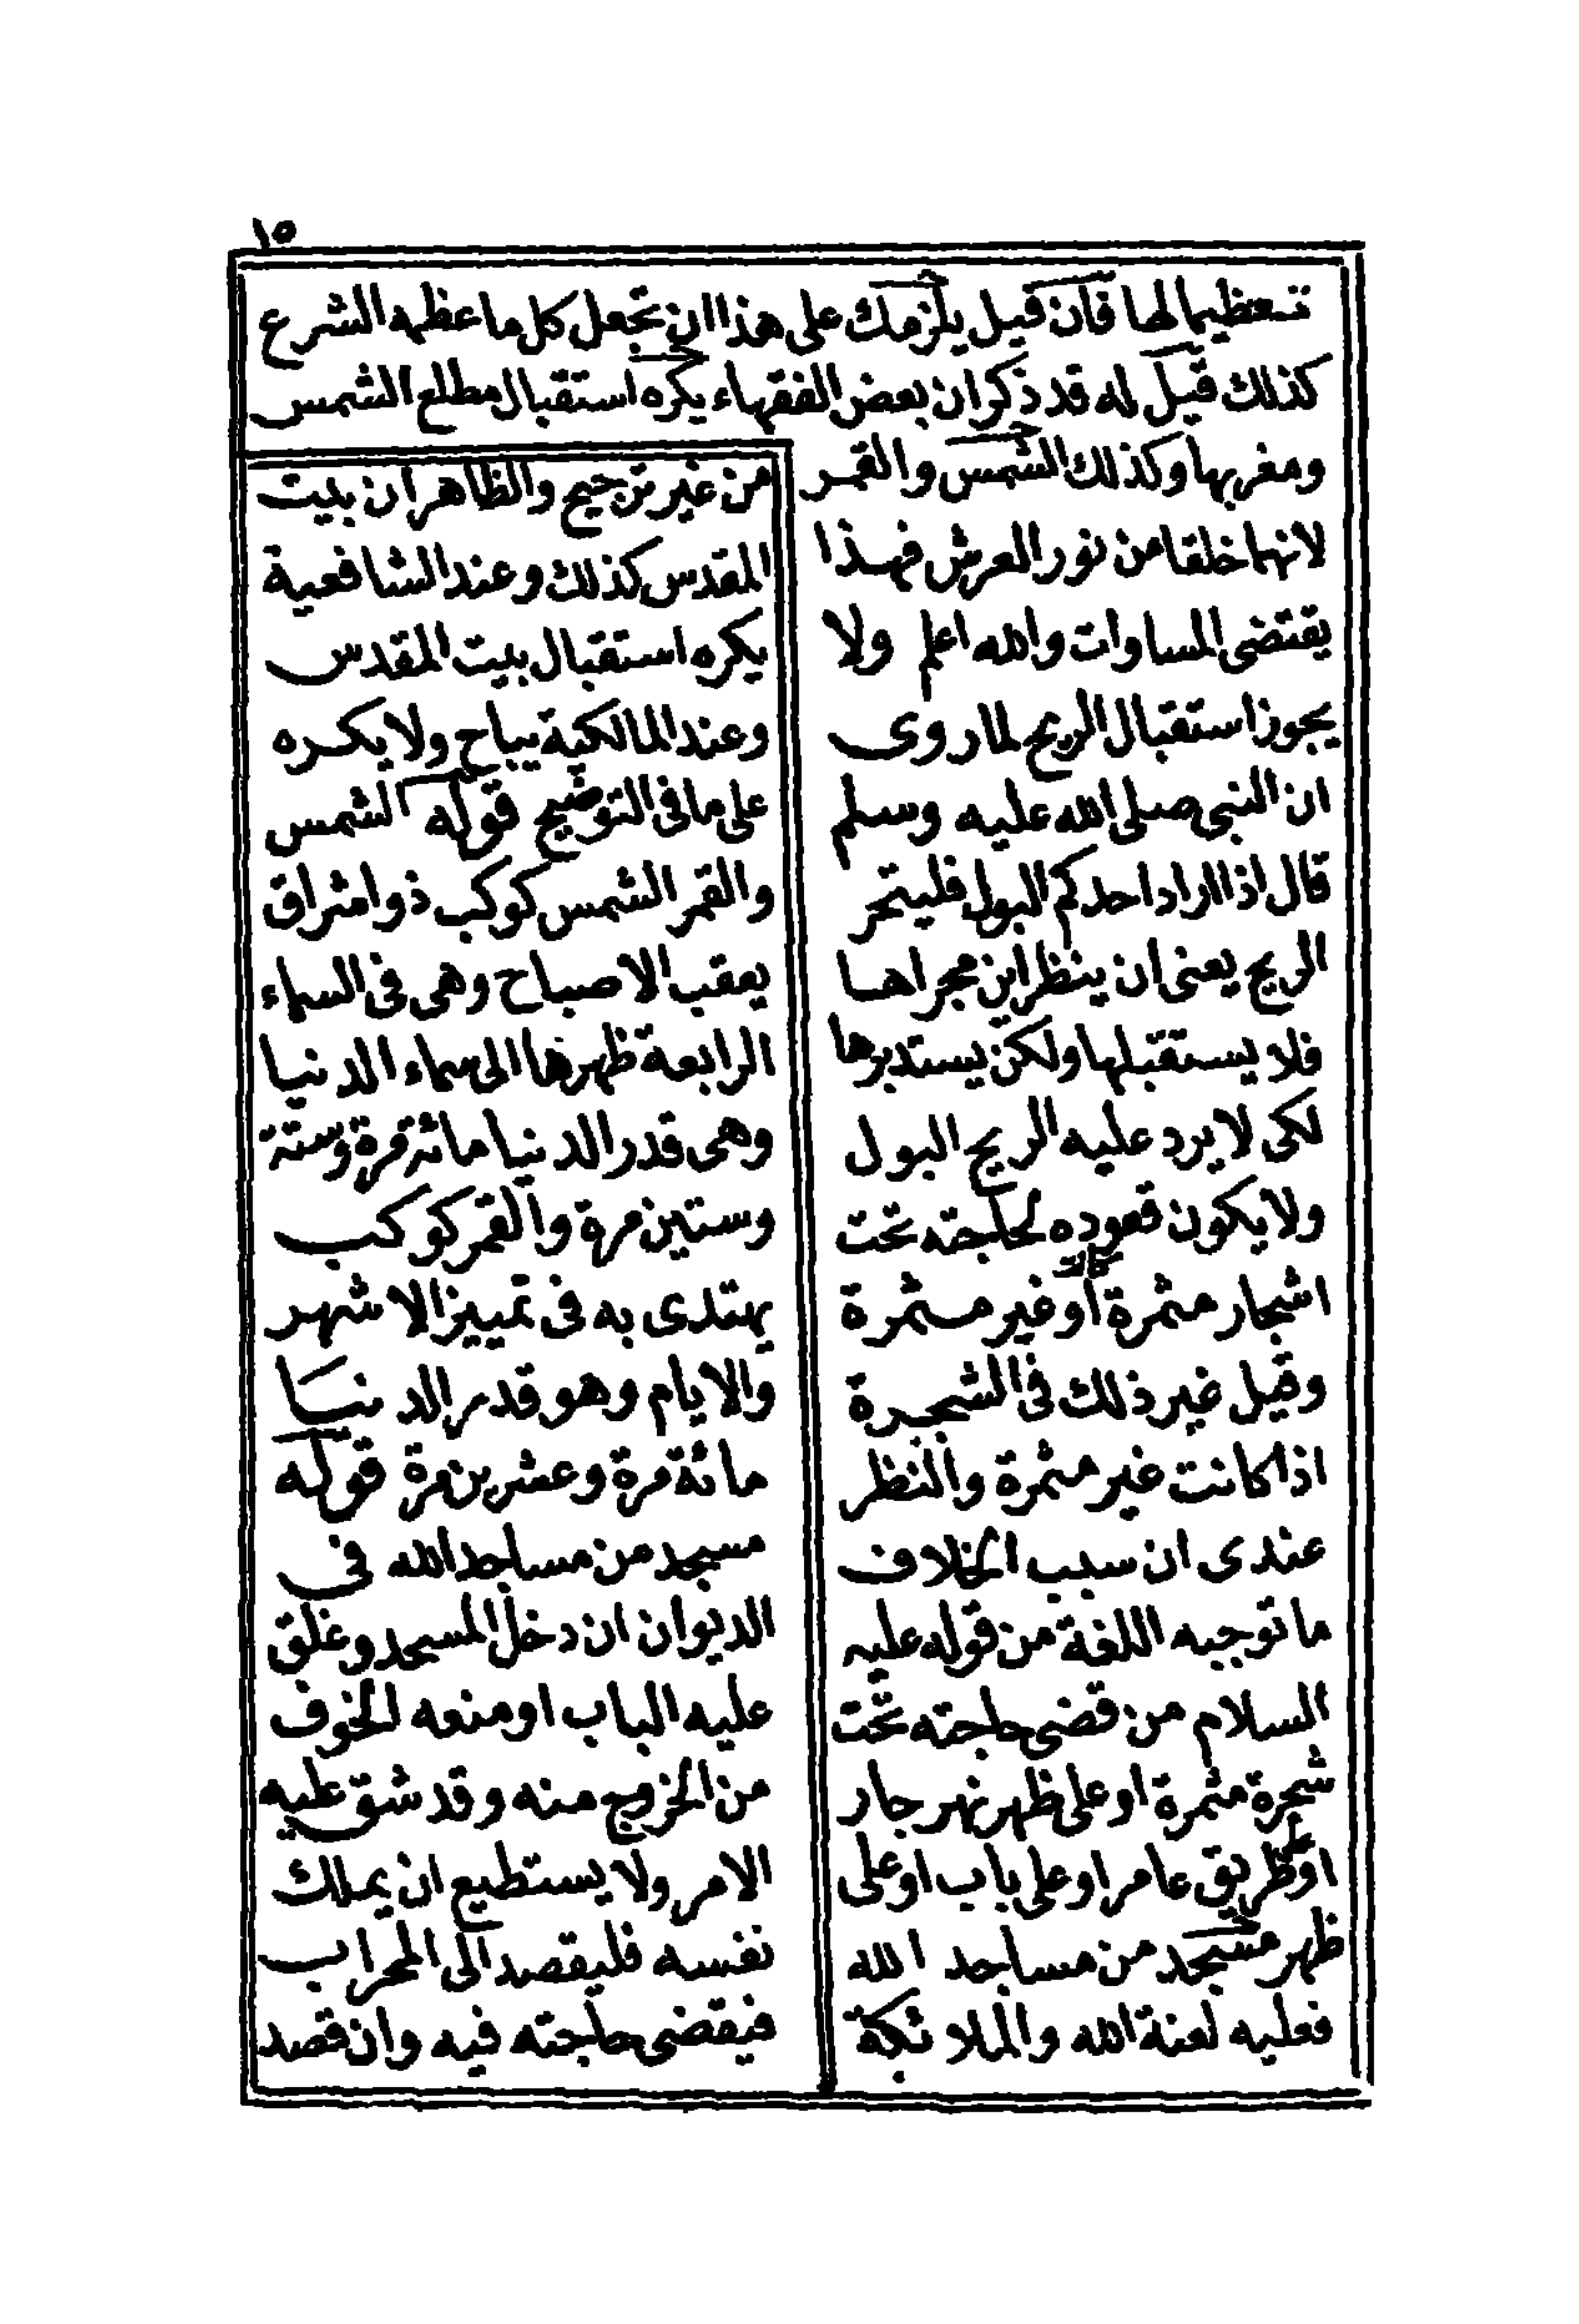 ١٥
تعظيما لها فان قيل يلزمك على هذا ان تجعل كل ما عظمه الشرع
كذلك قيل له قد ذكر ان بعض الفقهاء يكره استقبال مطلع الشمس
ومغربها وكذلك الشمس والقمر
لانهما خلقا من نور العرش فهذا
يقتضى المساوات والله اعلم ولا
يجوز استقبال الريح لما روى
ان النبي صلى الله عليه وسلم
قال اذا اراد احدكم البول فليتحر
الريح يعنى ان ينظر اين مجراها
فلا يستقبلها ولكن يستدبرها
لكى لا يرد عليه الريح البول
ولا يكون قعوده لحاجته تحت
اشجار مثمرة كانت او غير مثمرة
وقيل غير ذلك فى الشجرة
اذا كانت غير مثمرة والنظر
عندى ان سبب الخلاف
ما توجبه اللغة من قوله عليه
السلام من قضى حاجته تحت
شجرة مثمرة او على ظهر نهر جار
او على طريق عامر او على باب او على
ظهر مسجد من مساجد الله
فعليه لعنة الله والملائكة
من غير ترجيح والظاهر ان بيت
المقدس كذلك وعند الشافعية
يكره استقبال بيت المقدس
وعند المالكية يباح ولا يكره
على ما فى التوضيح قوله الشمس
والقمر الشمس كوكب ذو اشراق
يعقب الاصباح وهى فى السماء
الرابعة ظهرها الى سماء الدنيا
وهى قدر الدنيا مائة مرة وستة
وستين مرة والقمر كوكب
يهتدى به فى تمييز الاشهر
والايام وهو قدر الدنيا
مائة مرة وعشرين مرة قوله
مسجد من مساجد الله فى
الديوان ان دخل المسجد وغلق
عليه الباب او منعه الخوف
من الخروج منه وقد شق عليه
الامر ولا يستطيع ان يملك
نفسه فليقصد الى المحراب
فيقضى حاجته فيه وان قصد